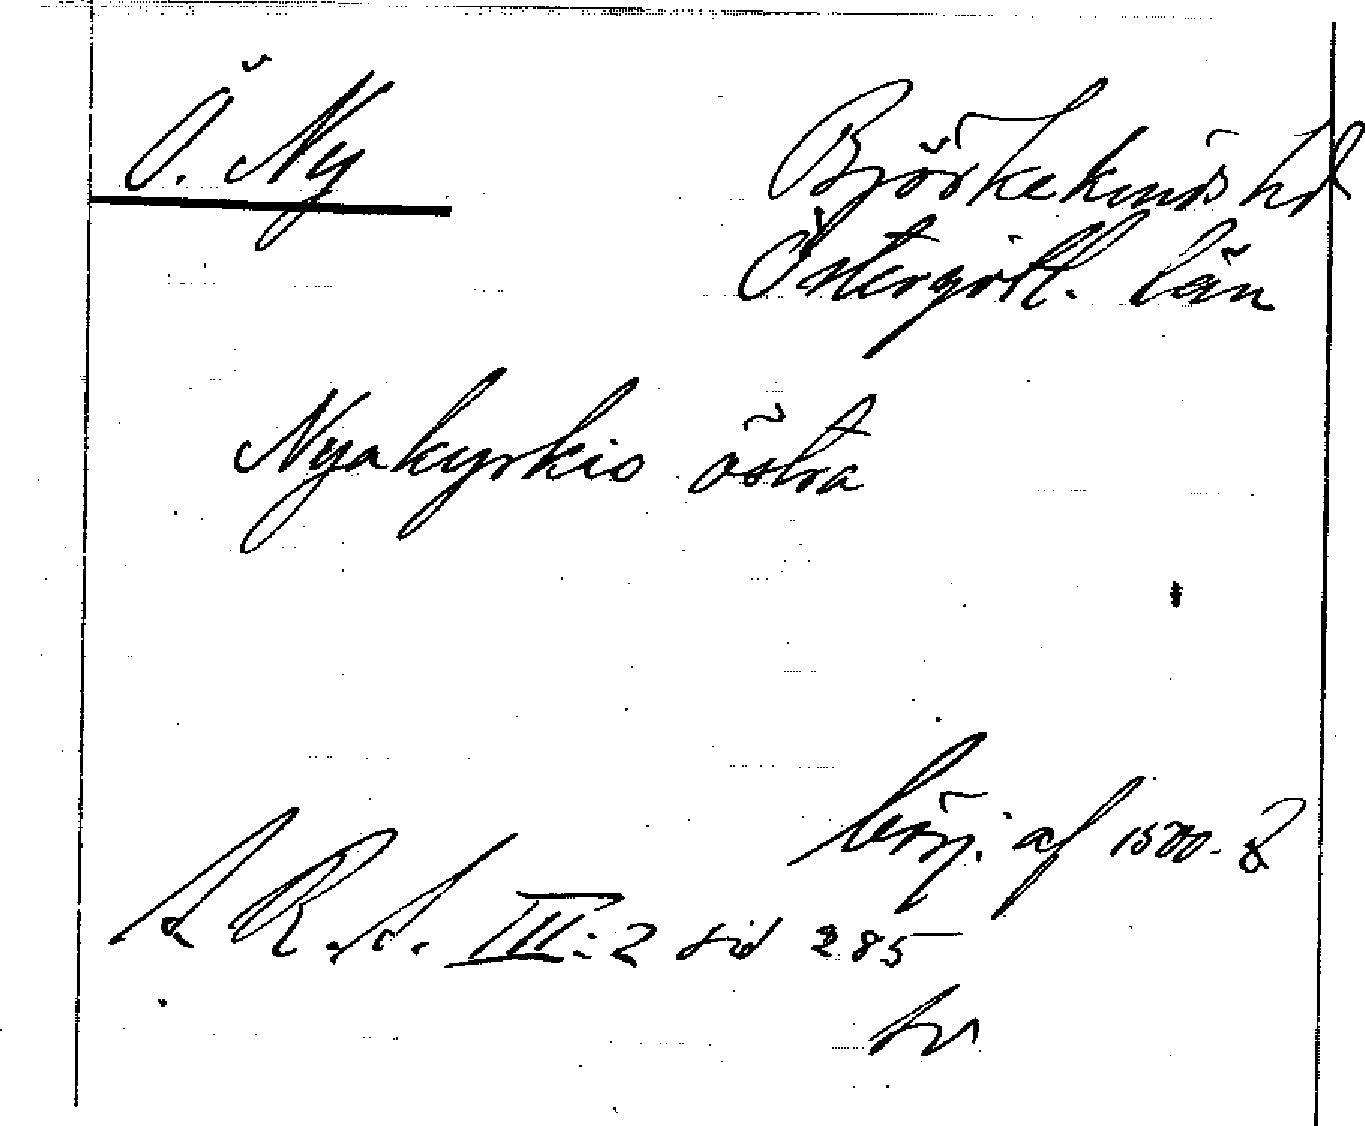 Ö. Ny
Björkekinds hd
Östergötl. län
Nyakyrkio östra
börj. af 1500-t
S. R. S. III: 2 sid 285